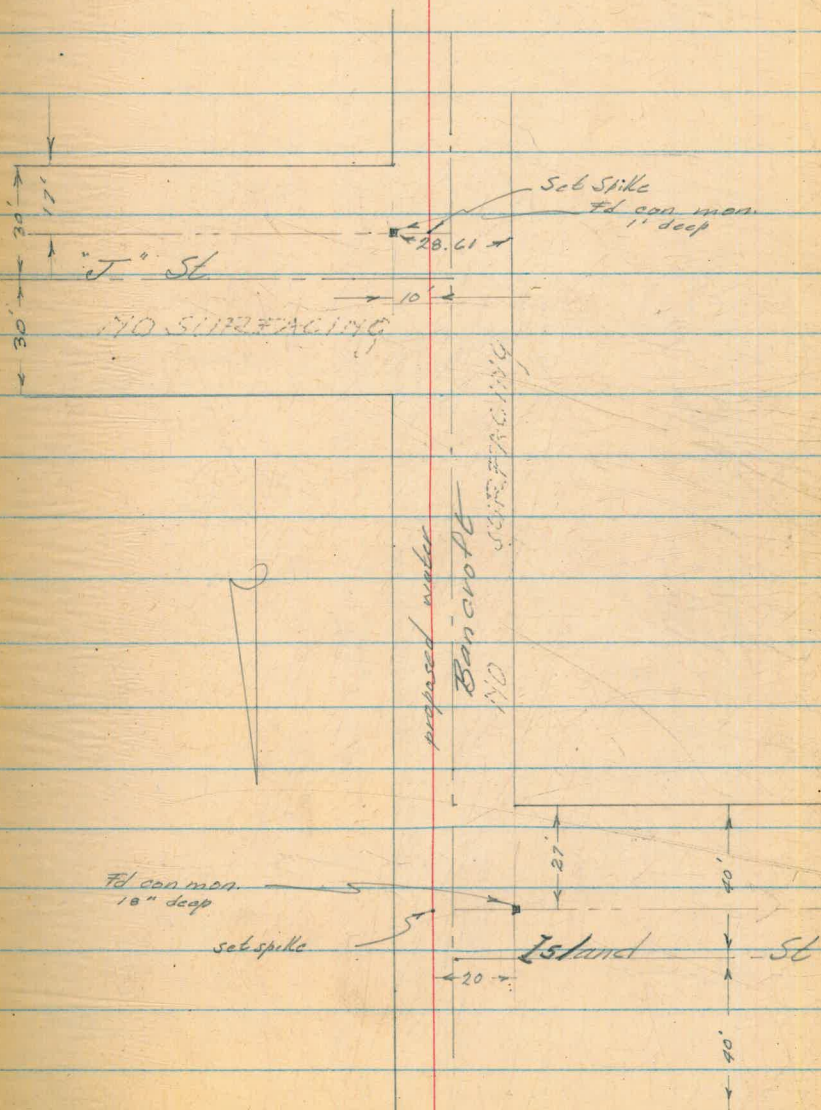 17'
30'
Set Spike
Fd con mon.
1' deep
28.61
"J" St
10'
NO SURFACING
30'
proposed water
Bancroft
NO SURFACING
27'
40'
Fd con mon.
18" deep
set spike
Island St
20
40'